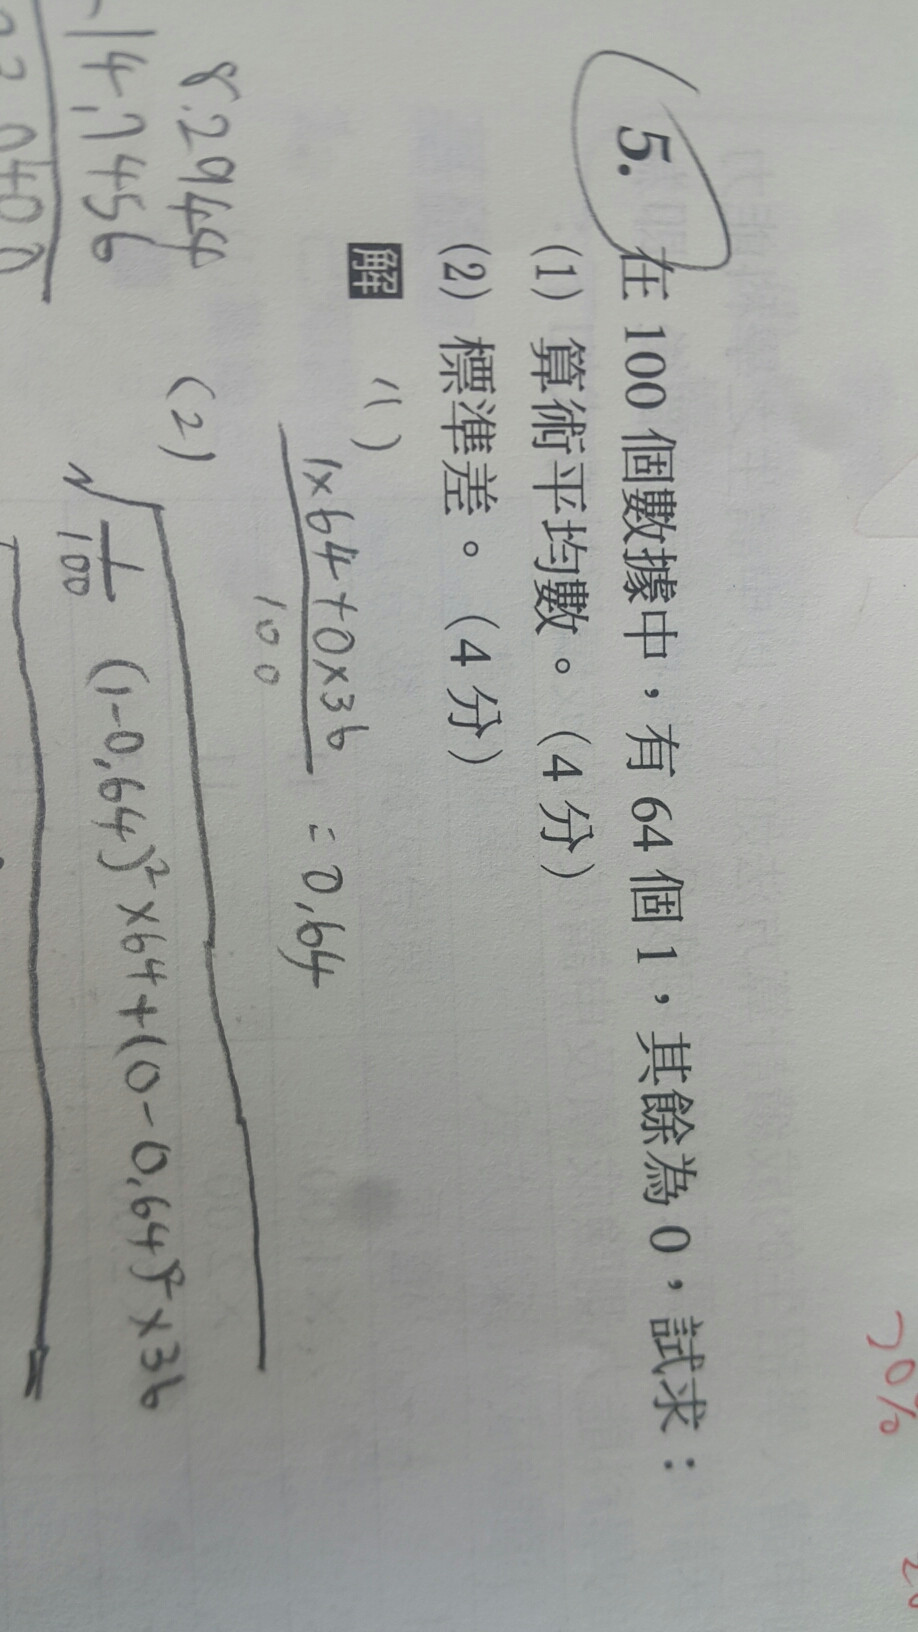 5. 在 100 個數據中，有 64 個 1，其餘為 0，試求：
(1) 算術平均數。(4 分)
(2) 標準差。(4 分)
解
(1)
1×64+0×36
100
=0.64
8.2944
14.7456
(2)
√ 1/100 (1-0.64)²×64+(0-0.64)²×36